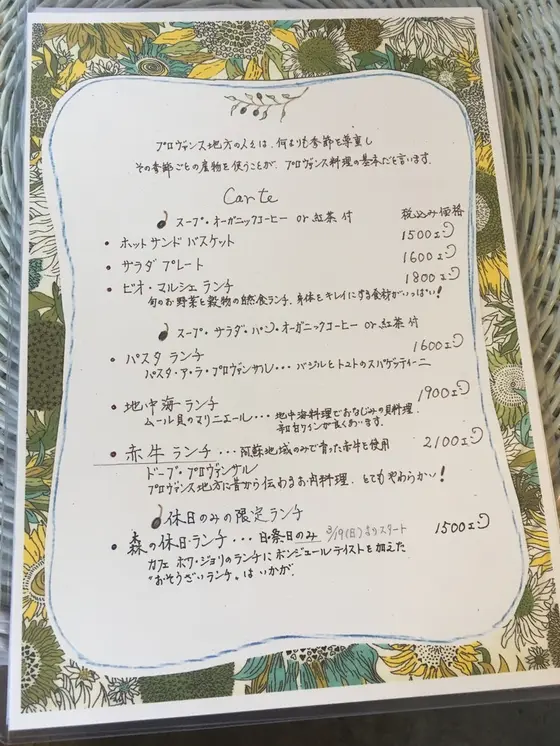 プロヴァンス地方の人々は、何よりも季節を尊重し
その季節ごとの産物を使うことが、プロヴァンス料理の基本だと言います。
Carte
スープ・オーガニックコーヒー or 紅茶 付 税込み価格
・ホットサンド バスケット 1500ェン
・サラダ プレート 1600ェン
・ビオ・マルシェ ランチ 1800ェン
旬のお野菜と穀物の自然食ランチ、身体をキレイにする食材がいっぱい!
スープ・サラダ・パン・オーガニックコーヒー or 紅茶 付
・パスタ ランチ 1600ェン
パスタ・ア・ラ・プロヴァンサル・・・バジルとトマトのスパゲッティーニ
・地中海ランチ 1900ェン
ムール貝のマリニエール・・・地中海料理でおなじみの貝料理、
辛口白ワインが良くあいます。
・赤牛ランチ・・・阿蘇地域のみで育った赤牛を使用 2100ェン
ドーブ・プロヴァンサル
プロヴァンス地方に昔から伝わるお肉料理、とてもやわらか~!
休日のみの限定ランチ
・森の休日・ランチ・・・日・祭日のみ 3/19(日)よりスタート 1500ェン
カフェ ホワ・ジョリのランチにボンジュールテイストを加えた
"おそうざいランチ"はいかが